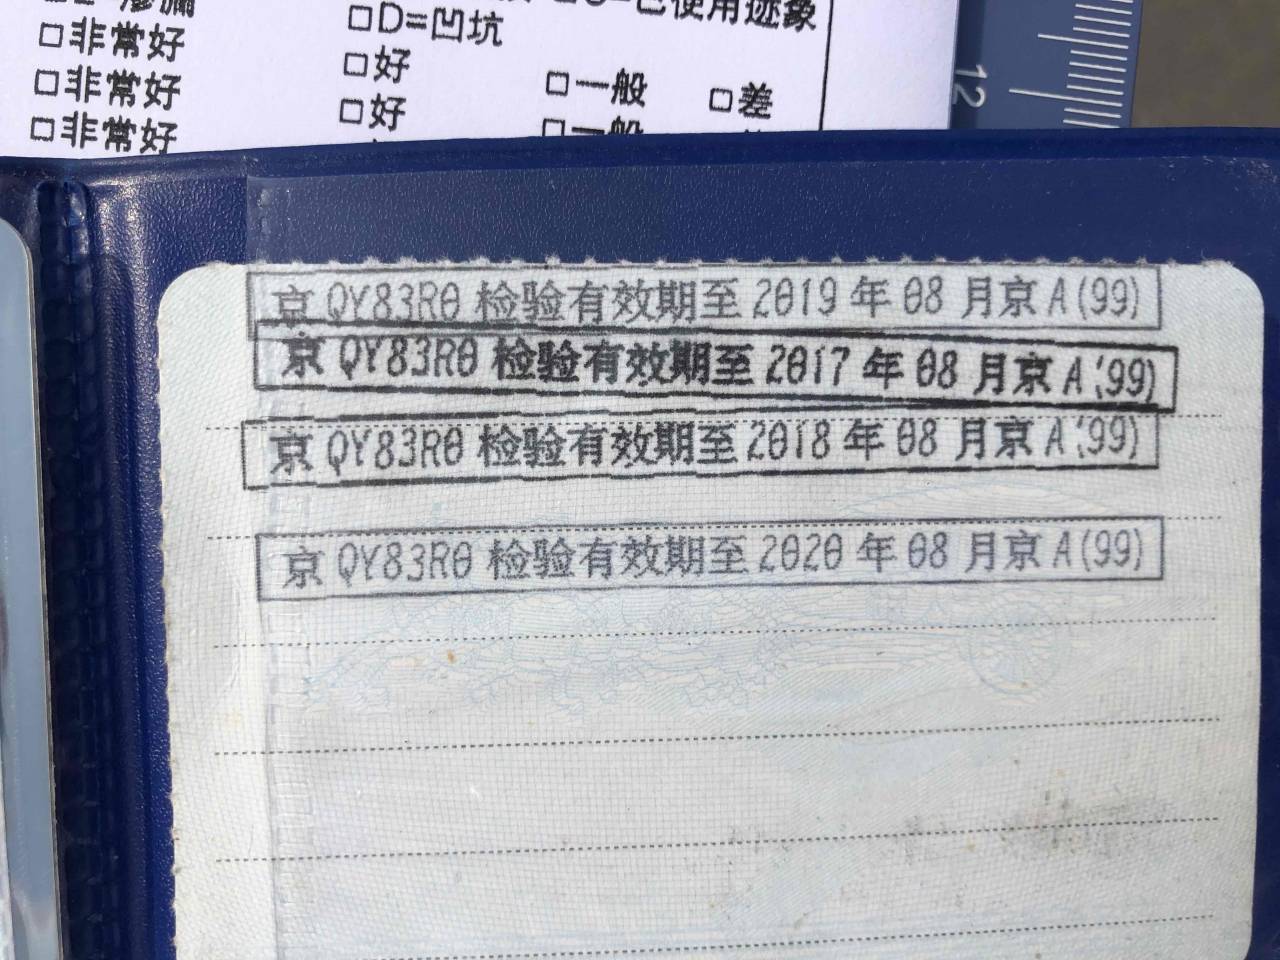 渗漏 已使用迹象
□非常好 □D=凹坑
□非常好 □好 □一般 □差
□非常好 □好 □一般
12
京QY83R0 检验有效期至2019年08月京A(99)
京QY83R0 检验有效期至2017年08月京A(99)
京QY83R0 检验有效期至2018年08月京A(99)
京QY83R0 检验有效期至2020年08月京A(99)